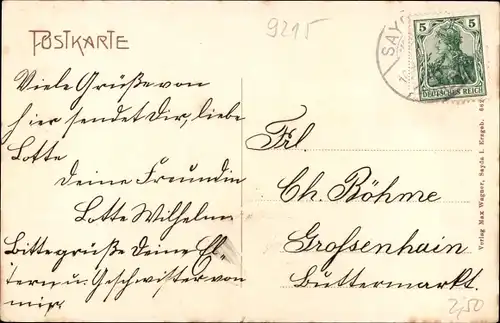 POSTKARTE
9215
SAY
5 5
DEUTSCHES REICH
Viele Grüße von
hier sendet Dir, liebe
Lotte
Deine Freundin
Lotte Wilhelm
Bitte grüße Deine El-
tern u. Geschwister von
mir
Frl.
Ch. Böhme
Grossenhain
Buttermarkt.
2,50
Verlag Max Wagner, Sayda i. Erzgeb.